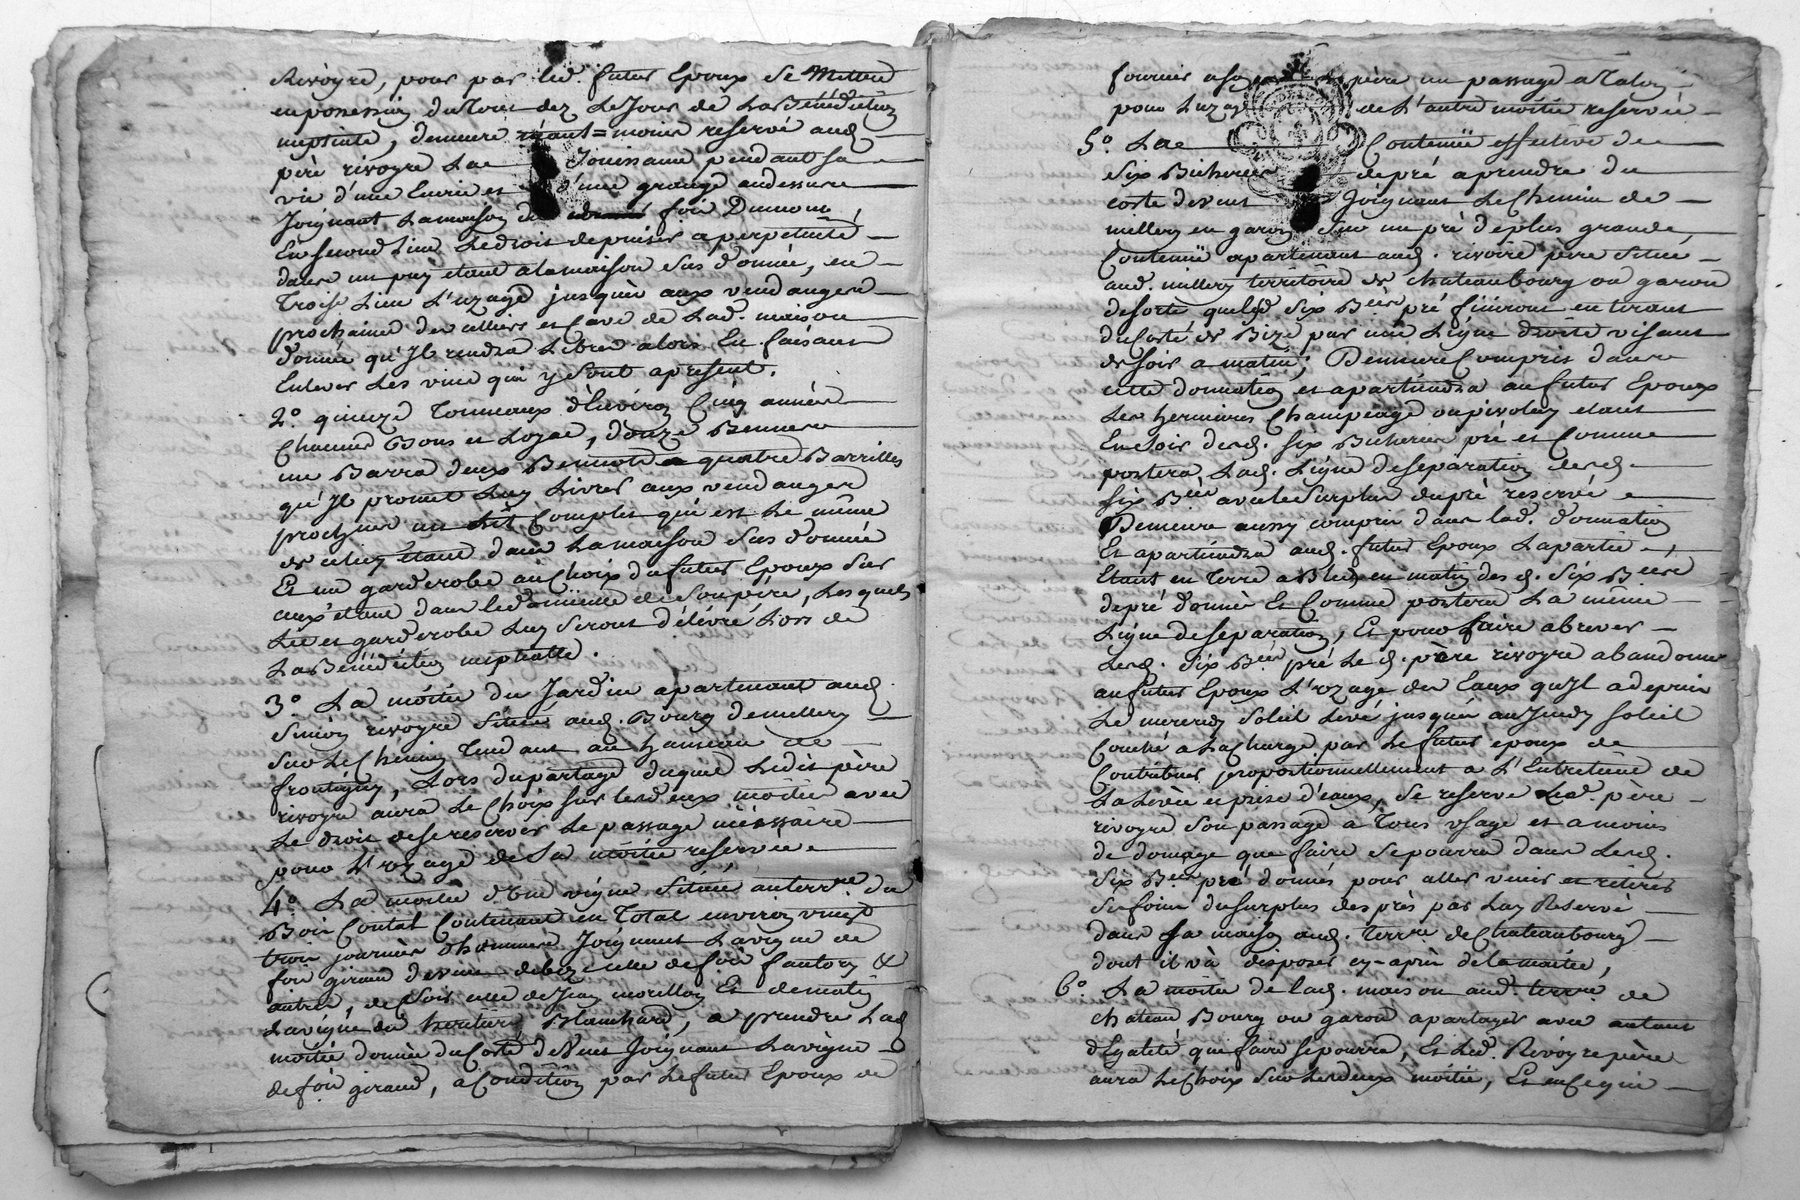 Rivoyre, pour par led. futur Epoux se Mettre
en possession du tout dez Le Jour de La Bénédiction
nuptiale, demeure néant=moins reservé aud.
père rivoyre La Jouissance pendant sa
vie d'une Ecurie et d'une grange audessus
Joignant La maison de fois Dumont,
En second Lieu Le droit de puiser a perpétuité
dans un puy etant a la maison sus donnée, en
Trois.e Lieu L'uzage jusqu'ès aux vendanges
prochaines des celliers et Cave de Lad. maison
donnée qu'Il rendra Libres alors En faisant
Enlever Les vins qui y sont apresent.
2.° quinze Tonneaux d'Environ Cinq années
Chacun Bons et Loyal, douze Bennes
une Barra deux Bennots quatre Barrilles
qu'Il promet Luy Livrer aux vendanges
proch.nes un Lit Complet qui est Le même
de celuy etant dans La maison sus donnée
Et une garderobe au Choix du futur Epoux sur
ceux etant dans le domicille de Soupire, Lesquels
Lit et garderobe Luy seront délivré Lors de
La Bénédiction nuptialle.
3.° La moitié du Jardin apartenant aud.
Simon rivoyre situé aud. Bourg de millery
sur Le Chemin Tendant au hameau de
frontigny, Lors du partage duquel Ledit père
rivoyre aura Le Choix sur les deux moitiés avec
Le droit de se reserver Le passage nécessaire
pour L'uzage de Sa moitié reservée
4.° La moitié d'une vigne située au terr.re du
Bois Contal Contenant en Total environ vingt
trois journées d'hommes Joignant La vigne de
fois giraud de vent de bize celle de fois fautory &
autres, de soir celle de Jean morillon Et de matin
La vigne des heritiers Blanchard, a prendre Lad.
moitié donnée du Costé de Vent Joignant La vigne
de fois giraud, a Condition par Le futur Epoux de
fournir a so père un passage a Talon
pour Luzage de L'autre moitié reservée
5.° La Contenüe effective de
Six Bicherées de pré a prendre du
costé de vent Joignant Le Chemin de
millery en garon Sur un pré de plus grande
Contenüe apartenant aud. rivoire père situé
aud. millery territoire de chateaubourg ou garon
de sorte quelesd. Six B.ées pré finiront en tirant
du Costé de Bize par une Ligne droite visant
de soir a matin; Demeure Compris dans
cette donnation et apartiendra au futur Epoux
Les hermures Champéage ou pivolay etant
En soir desd. Six Bicherées pré et Comme
portera Lad. Ligne de separation desd.
six B.ées avec le Surplus du pré reservé
Demeure aussy compris dans lad. donnation
Et apartiendra aud. futur Epoux La partie
Etant en Terre a Bled en matin desd. Six B.ées
de pré donné Et Comme portera La même
Ligne de separation, Et pour faire abrever
Lesd. Six B.ées pré Le d. père rivoyre abandonne
au futur Epoux L'uzage des Eaux qu'Il a depuis
Le mercredy soleil Levé jusqu'ès au Jeudy soleil
Couché a La Charge par Le futur epoux de
Contribuer proportionnellement a L'Entretient de
La Levée et prise d'eaux, Se reserve Led. père
rivoyre son passage a Tous usage et a moins
de domage que faire se pourra dans Lesd.
Six B.ées pré donnés pour aller venir et retirer
Le foin du surplus des prés par Luy Reservé
dans sa maison aud. Terr.re de Chateaubourg
dont il va disposer cy-après de la moitié,
6.° La moitié de lad. maison aud. terr.re de
Chateau Bourg ou garon a partager avec autant
d'Egalité que faire se pourra, Et Led. Rivoyre père
aura Le Choix sur Les deux moitié, Et en ce qui